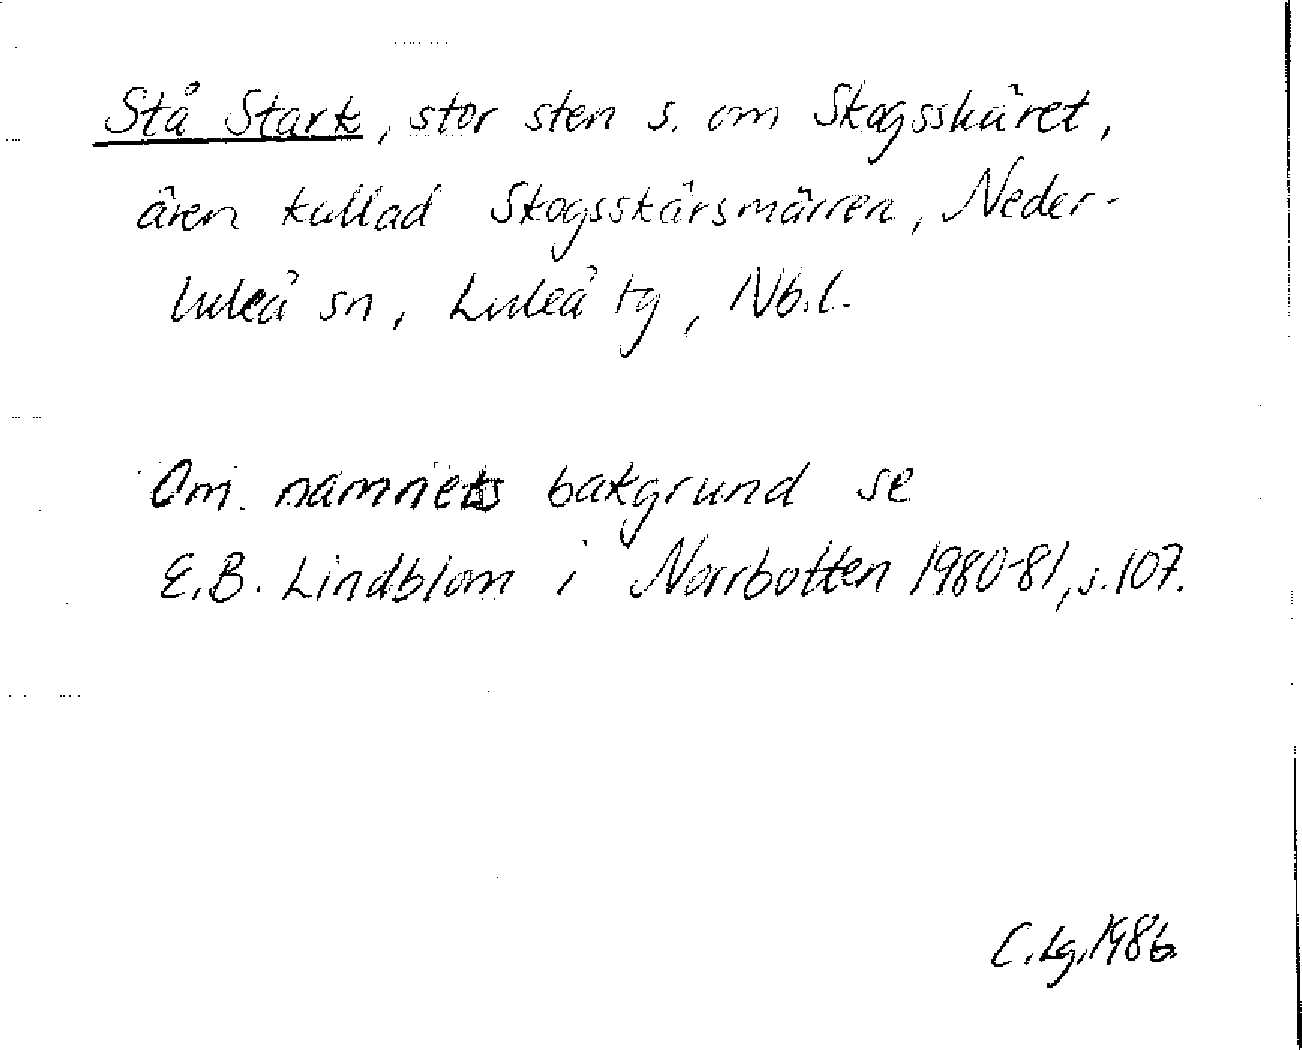 Stå Stark, stor sten s. om Skogsskäret,
även kallad Skogsskärsmärren, Neder-
luleå sn, Luleå tg, Nb.l.
Om namnets bakgrund se
E.B. Lindblom i Norrbotten 1980-81, s. 107.
C.Lg. 1986